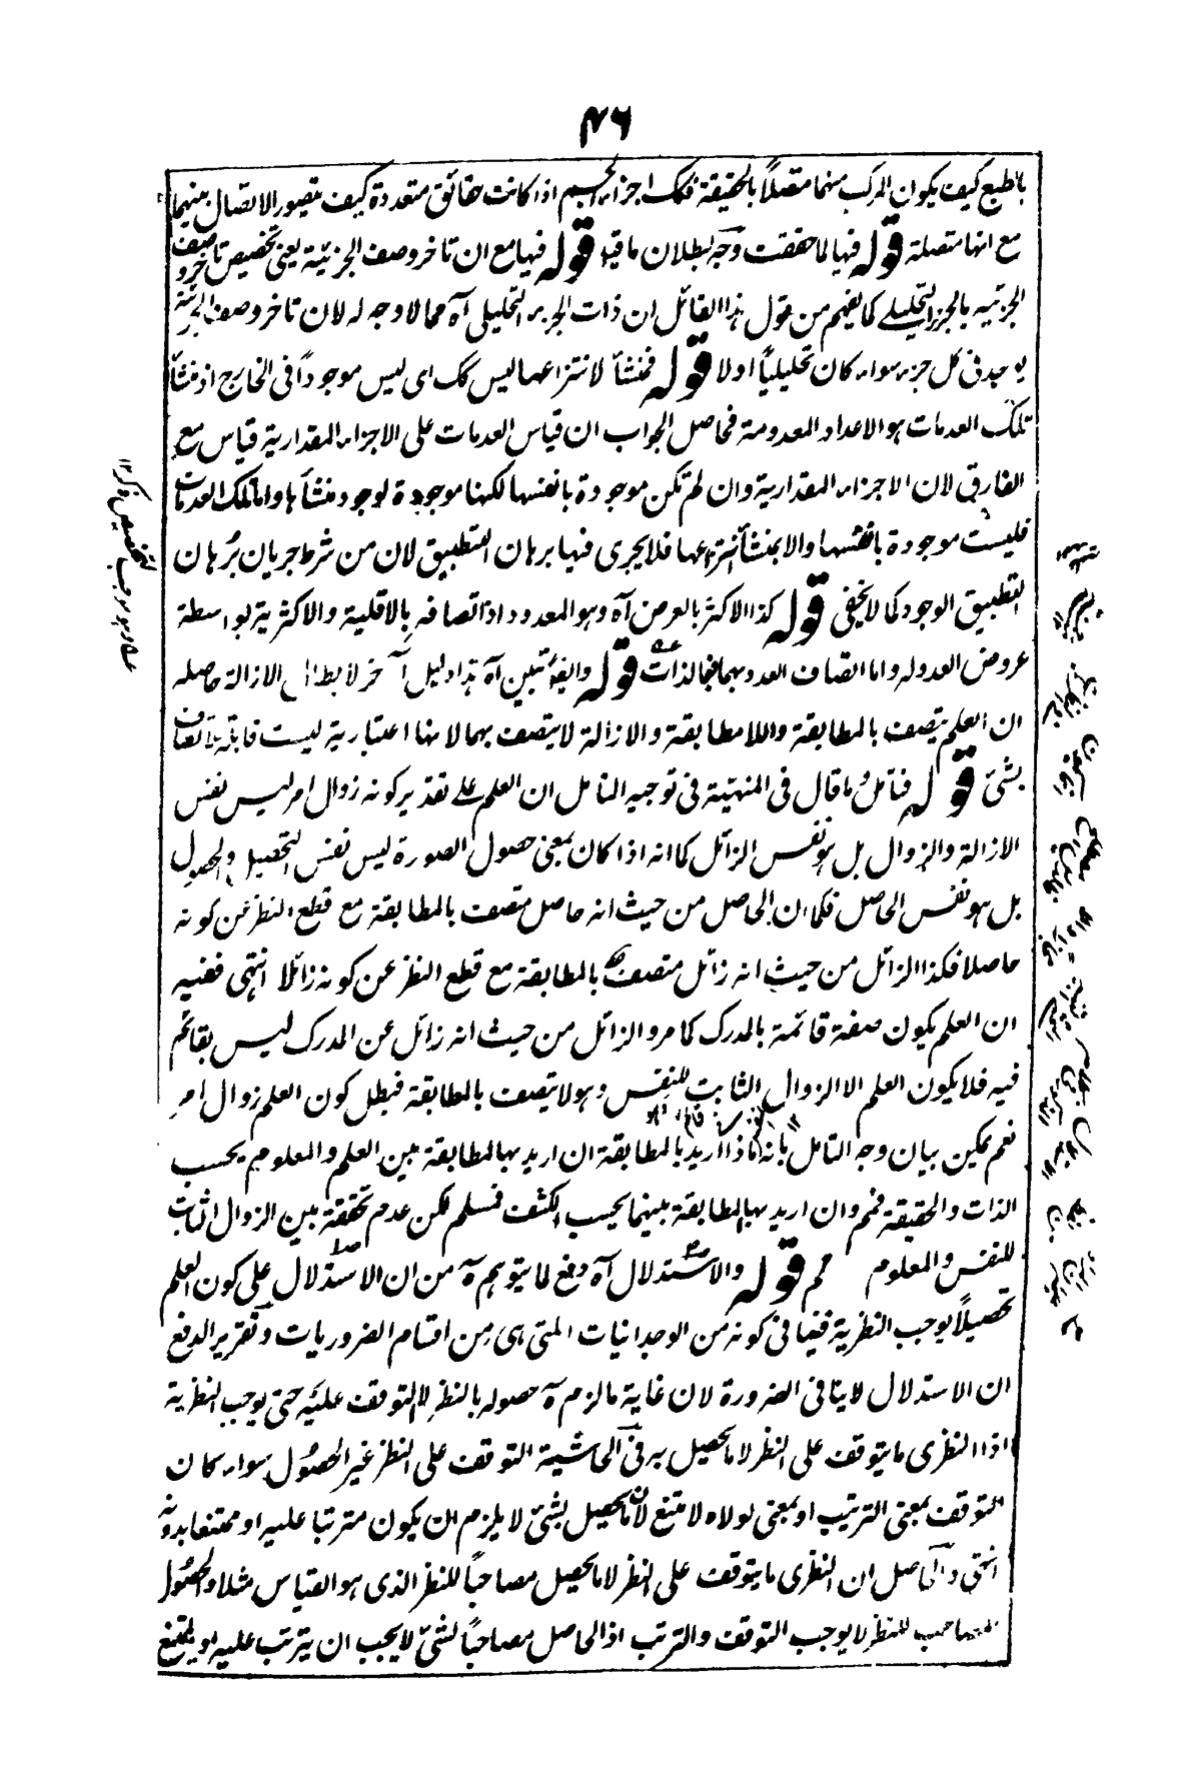 ٤٦
بالطبع كيف يكون المركب منهما متصلاً بالحقيقة فكك اجزاء الجسم اذا كانت حقائق متعددة كيف يتصور الاتصال بينهما
مع انها متصلة قوله فيها لما حققت وجه بطلان ما فيه قوله فيها مع ان تاخر وصف الجزئية يعنى تخصيص تاخر وصف
الجزئية بالجزء التحليلے كما يفهم من قول هذا القائل ان ذات الجزء التحليلى آه مما لا وجه له لان تاخر وصف الجزئية
يوجد فى كل جزء سواء كان تحليلياً او لا قوله فمنشأ لانتزاعها ليس كك اى ليس موجوداً فى الخارج اذ منشأ
تلك العدمات هو الاعداد المعدومة فحاصل الجواب ان قياس العدمات على الاجزاء المقدارية قياس مع
الفارق لان الاجزاء المقدارية وان لم تكن موجودة بانفسها لكنها موجودة لوجود منشأها واما تلك العدمات
فليست موجودة بانفسها ولا بمنشأ انتزاعها فلا يجرى فيها برهان التطبيق لان من شرط جريان برهان
التطبيق الوجود كما لا يخفى قوله كذا الاكثر بالعرض آه وهو المعدود اذ اتصافه بالاقلية والاكثرية بواسطة
عروض العدد له واما اتصاف العدد بهما فبالذات قوله والفرق تبين آه هذا دليل آخر لابطال الازالة حاصله
ان العلم يتصف بالمطابقة واللامطابقة والازالة لا يتصف بهما لانها اعتبارية ليست قابلة لاتصاف
بشئ قوله فتامل ما قال فى المنهية فى توجيه التامل ان العلم علے تقدير كونه زوال امر ليس نفس
الازالة والزوال بل هو نفس الزائل كما انه اذا كان بمعنى حصول الصورة ليس نفس التحصيل والحصول
بل هو نفس الحاصل فكما ان الحاصل من حيث انه حاصل متصف بالمطابقة مع قطع النظر عن كونه
حاصلا فكذا الزائل من حيث انه زائل متصف بالمطابقة مع قطع النظر عن كونه زائلا انتهى ففيه
ان العلم يكون صفة قائمة بالمدرك كما مر والزائل من حيث انه زائل عن المدرك ليس بقائم
فيه فلا يكون العلم الا الزوال الثابت للنفس وهو لا يتصف بالمطابقة فبطل كون العلم زوال امر
نعم يمكن بيان وجه التامل بانه ماذا اريد بالمطابقة ان اريد بها المطابقة بين العلم والمعلوم بحسب
الذات والحقيقة فمنع وان اريد بها المطابقة بينهما بحسب الكشف فمسلم لكن عدم تحققه بين الزوال الثابت
للنفس والمعلوم مم قوله والاستدلال آه دفع لما يتوهم آه من ان الاستدلال على كون العلم
تحصيلاً يوجب النظرية فينافى كونه من الوجدانيات التى هى من اقسام الضروريات وتقرير الدفع
ان الاستدلال لا ينافى الضرورة لان غاية ما لزم آه حصوله بالنظر لا التوقف عليه حتى يوجب النظرية
اذ النظرى ما يتوقف على النظر لا ما يحصل به فى الحاشية التوقف على النظر غير الحصول سواء كان
التوقف بمعنى الترتيب او بمعنى لولاه لامتنع لان ما يحصل بشئ لا يلزم ان يكون مترتبا عليه او ممتنعا بدونه
انتهى والحاصل ان النظرى ما يتوقف على النظر لا ما يحصل مصاحباً للنظر الذى هو القياس مثلا والحصول
المصاحب للنظر لا يوجب التوقف والترتب اذ الحاصل مصاحباً لشئ لا يجب ان يترتب عليه او يمتنع